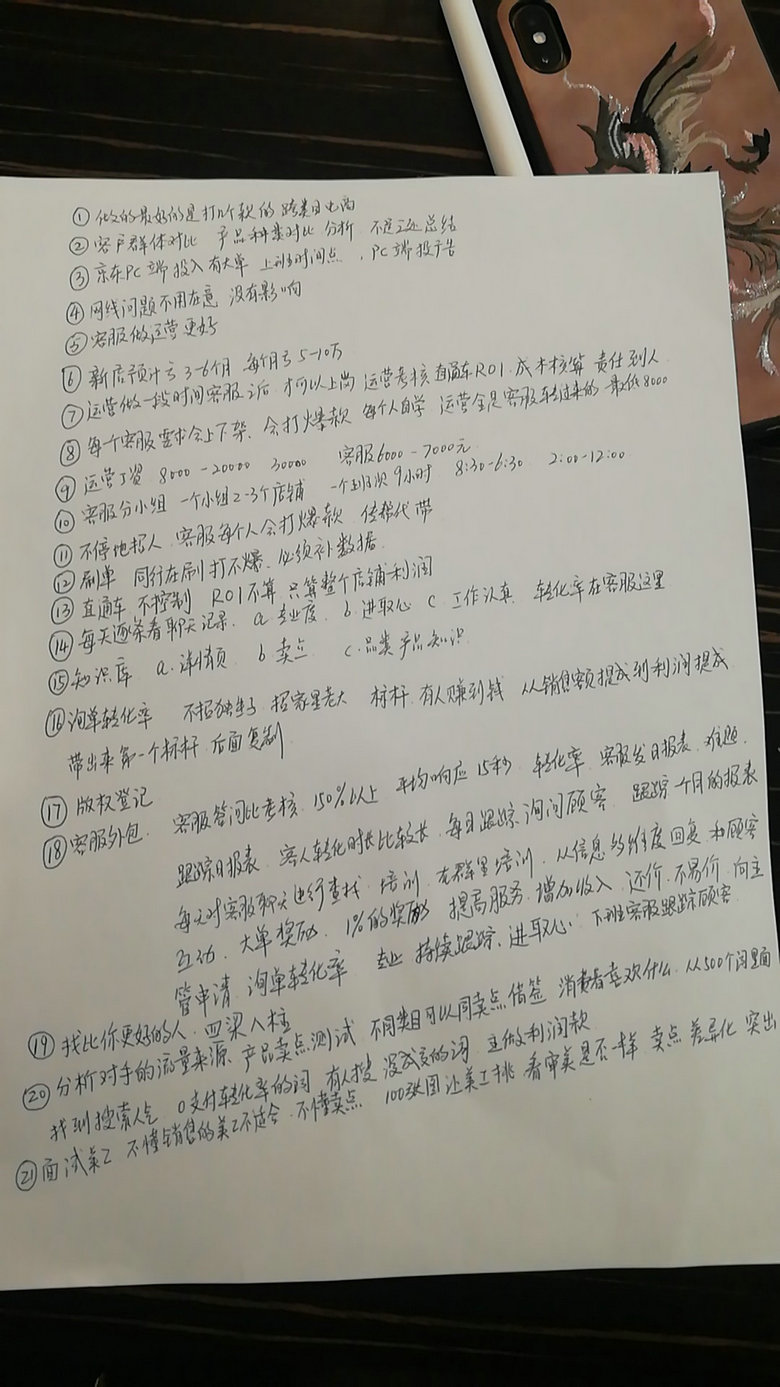 ① 做的最好的是打几个款的 跨类目电商
② 客户群体对比 产品种类对比 分析 不足之处 总结
③ 京东PC端投入有大单 上班时间点，PC端投广告
④ 网线问题不用在意 没有影响
⑤ 客服做运营更好
⑥ 新店预计亏3-6个月 每个月亏5-10万
⑦ 运营做一段时间客服之后 才可以上岗 运营考核直通车ROI、成本核算 责任到人
⑧ 每个客服要求会上下架、会打爆款 每个人自学 运营全是客服转过来的 最低8000
⑨ 运营工资 8000-20000 30000 客服6000-7000元
⑩ 客服分小组 一个小组2-3个店铺 一个班次9小时 8:30-6:30 2:00-12:00
⑪ 不停地招人、客服每个人会打爆款 传帮代带
⑫ 刷单 同行在刷 打不爆、必须补数据
⑬ 直通车 不控制 ROI不算、只算整个店铺利润
⑭ 每天逐条看聊天记录、a 专业度、b.进取心 c.工作认真、转化率在客服这里
⑮ 知识库 a.详情页 b.卖点 c.品类产品知识
⑯ 询单转化率 不招独生子 招家里老大 标杆、有人赚到钱 从销售额提成到利润提成
带出来第一个标杆、后面复制
⑰ 版权登记
⑱ 客服外包、客服答问比考核、150%以上 平均响应15秒 转化率、客服发日报表、难题、
跟踪日报表、客人转化时长比较长、每日跟踪询问顾客 跟踪一个月的报表
每天对客服聊天进行查找、培训、在群里培训、从信息多维度回复和顾客
互动、大单奖励、1%的奖励 提高服务、增加收入、还价、不易价、向主
管申请、询单转化率 专业 持续跟踪、进取心、下班客服跟踪顾客、
⑲ 找比你更好的人、四梁八柱
⑳ 分析对手的流量来源、产品卖点测试 不同类目可以同卖点借鉴 消费者喜欢什么、从500个词里面
找到搜索人气 0支付转化率的词 有人搜 没成交的词、主做利润款
㉑ 面试美工 不懂销售的美工不适合、不懂卖点 100张图让美工挑 看审美是否一样 卖点 差异化 突出